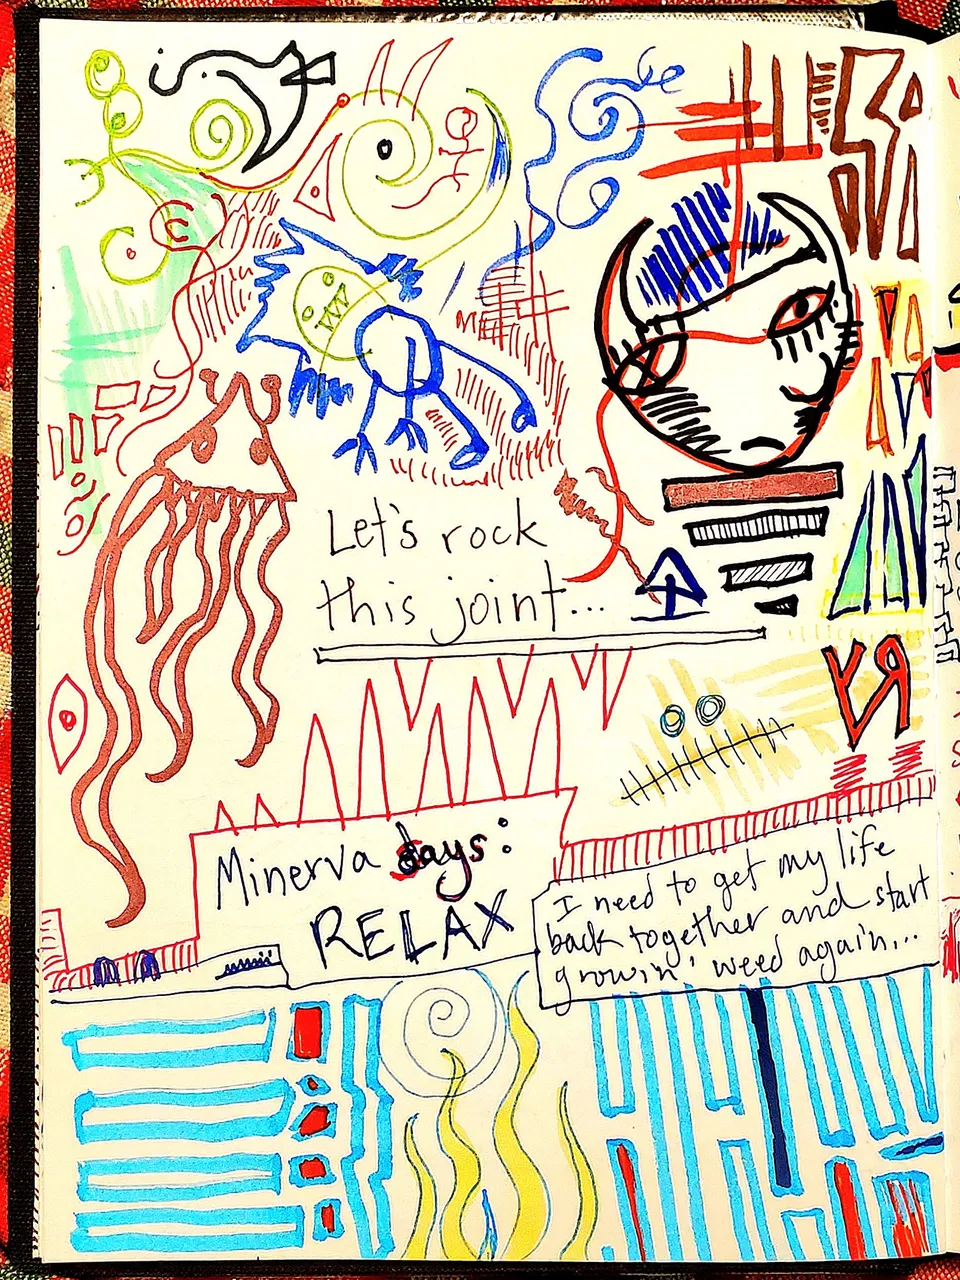 Let's rock
this joint...
Minerva days:
RELAX
I need to get my life
back together and start
growin' weed again...